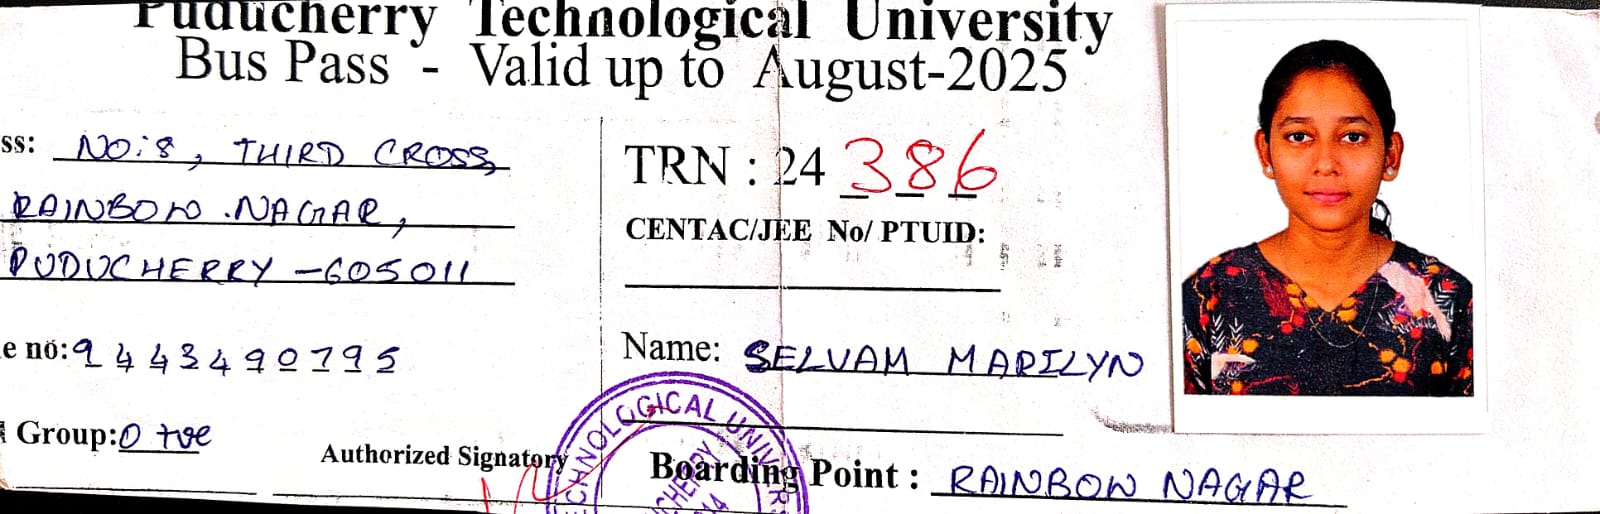 Puducherry Technological University
Bus Pass - Valid up to August-2025
ss: NO:8, THIRD CROSS,
RAINBOW .NAGAR,
PUDUCHERRY -605011
e no: 9443490795
Group: O +ve
Authorized Signatory
TRN : 24 386
CENTAC/JEE No/ PTUID:
Name: SELVAM MARILYN
Boarding Point : RAINBOW NAGAR